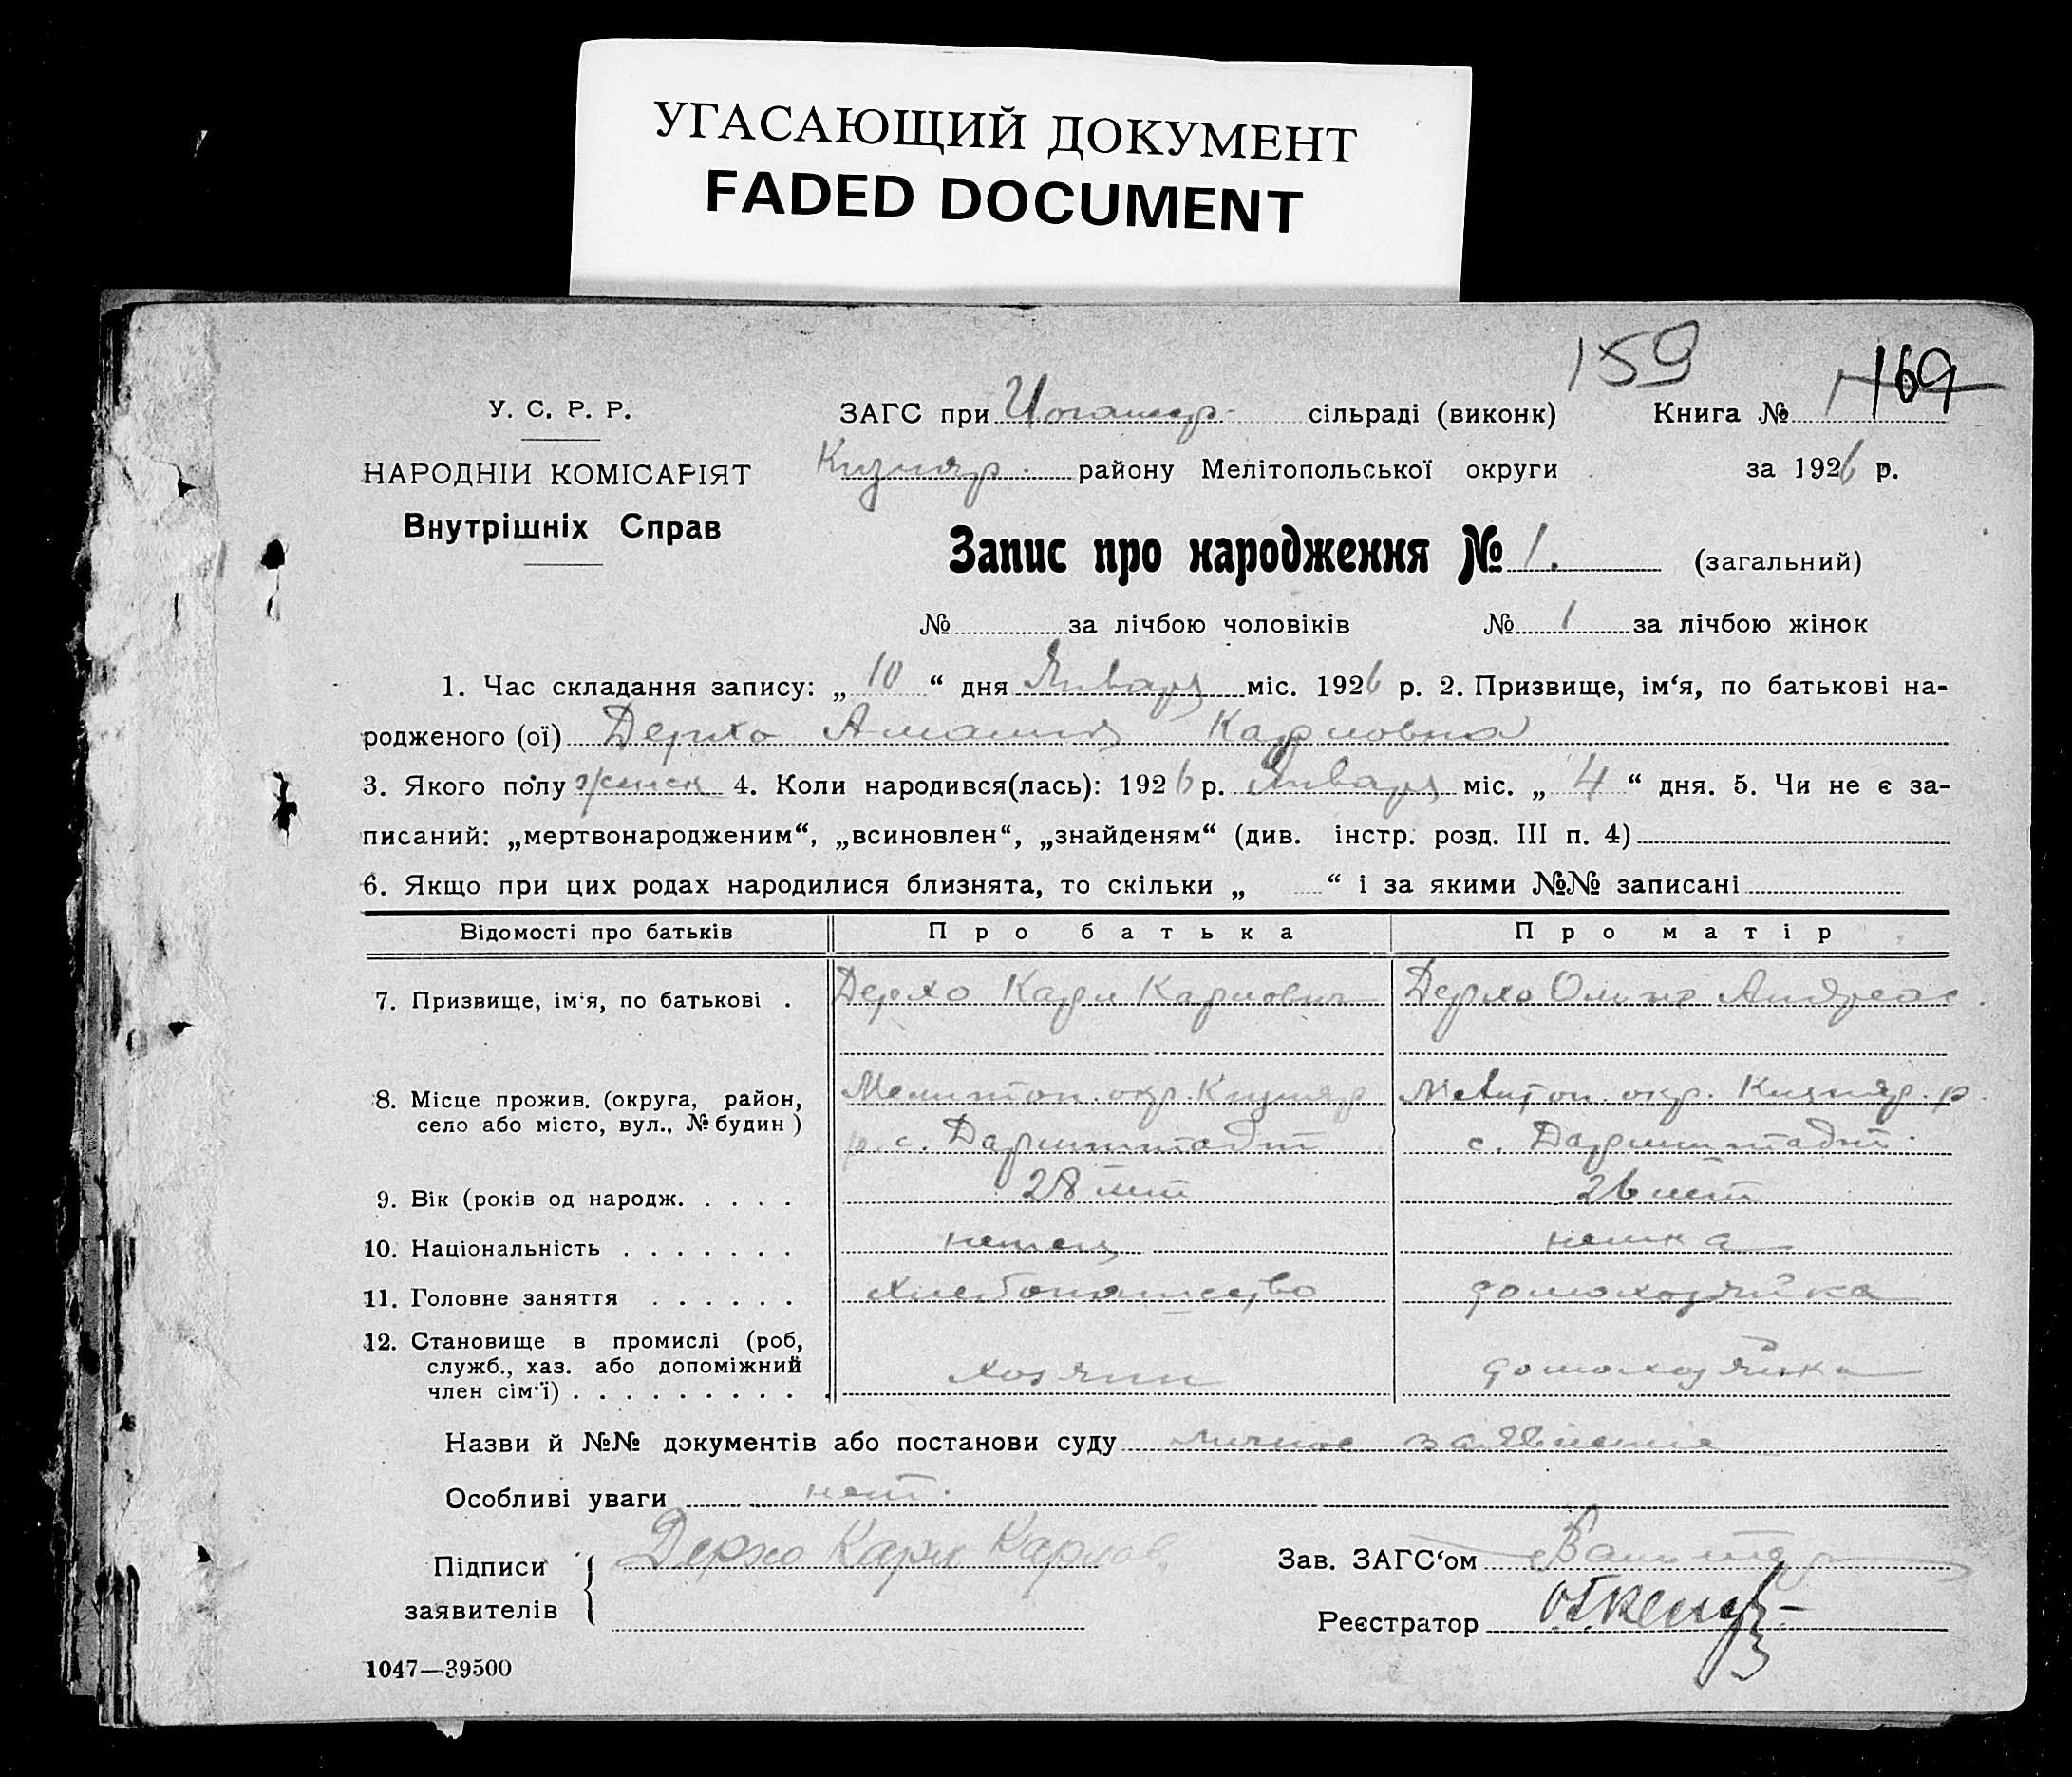 УГАСАЮЩИЙ ДОКУМЕНТ
FADED DOCUMENT
159
169
У. С. Р. Р.
ЗАГС при сільраді (виконк) Книга №
НАРОДНІЙ КОМІСАРІЯТ
Кизияр. району Мелітопольської округи за 1926 р.
Внутрішніх Справ
Запис про народження № 1. (загальний)
№ за лічбою чоловіків № 1 за лічбою жінок
1. Час складання запису: „ 10 “ дня Января міс. 1926 р. 2. Призвище, ім‘я, по батькові на-
родженого (ої) Дерхо Амалия Карловна
3. Якого полу женск 4. Коли народився(лась): 1926 р. января міс. „ 4 “ дня. 5. Чи не є за-
писаний: „мертвонародженим“, „всиновлен“, „знайденям“ (див. інстр. розд. III п. 4)
6. Якщо при цих родах народилися близнята, то скільки „ “ і за якими №№ записані
Відомості про батьків Про батька Про матір
7. Призвище, ім‘я, по батькові . Дерхо Карл Карлович Дерхо Андреас.
8. Місце прожив. (округа, район, Мелитоп. окр. Кизияр Мелитоп. окр. Кизияр. р.
село або місто, вул., № будин ) р. с. Дармштадт с. Дармштадт.
9. Вік (років од народж. . . . . 28 лет 26 лет
10. Національність . . . . . . . немец немка
11. Головне заняття . . . . . . хлебопашество домохозяйка
12. Становище в промислі (роб,
служб., хаз. або допоміжний хозяин домохозяйка
член сім‘ї) . . . . . . . . . .
Назви й №№ документів або постанови суду личное заявление
Особливі уваги нет.
Підписи Дерхо Карл Карлов. Зав. ЗАГС‘ом
заявителів Реєстратор
1047—39500